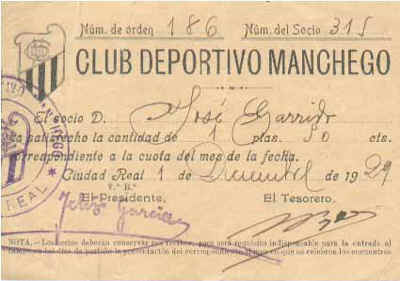 Núm. de orden 186 Núm. del Socio 315
CLUB DEPORTIVO MANCHEGO
El socio D. José Garrido
ha satisfecho la cantidad de 1 ptas. 50 cts.
correspondiente a la cuota del mes de la fecha.
Ciudad Real 1 de 1929
V.º B.º
El Presidente, El Tesorero.
García
NOTA.—Los socios deberán conservar los recibos, pues será requisito indispensable para la entrada al
campo en los días de partido la presentación del correspondiente al mes en que se celebren los encuentros
REAL